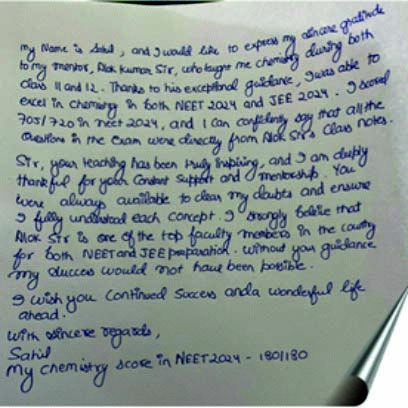 My Name is Sahil, and I would like to express my sincere gratitude
to my mentor, Alok Kumar Sir, who taught me chemistry during both
Class 11 and 12. Thanks to his exceptional guidance, I was able to
excel in Chemistry in both NEET 2024 and JEE 2024. I scored
705/720 in neet 2024, and I can confidently say that all the
Questions in the Exam were directly from Alok Sir's Class notes.
Sir, your teaching has been truly inspiring, and I am deeply
thankful for your Constant Support and mentorship. You
were always available to clear my doubts and ensure
I fully understood each concept. I strongly believe that
Alok Sir is one of the top faculty members in the country
for both NEET and JEE preparation. Without your guidance
my success would not have been possible.
I wish you Continued Success and a wonderful life
ahead.
With sincere regards,
Sahil
My chemistry score in NEET 2024 - 180/180